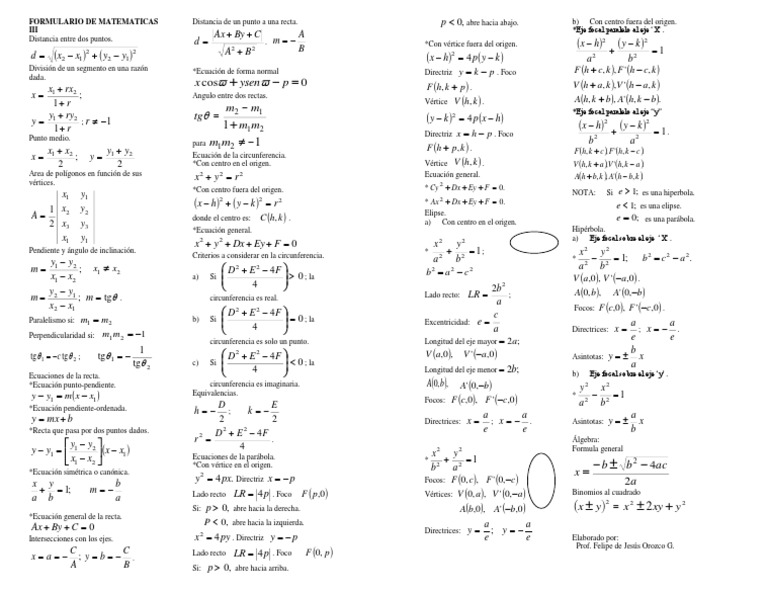 FORMULARIO DE MATEMATICAS
III
Distancia entre dos puntos.
d = √((x₂ − x₁)² + (y₂ − y₁)²
División de un segmento en una razón
dada.
x = (x₁ + rx₂)/(1 + r) ;
y = (y₁ + ry₂)/(1 + r) ; r ≠ −1
Punto medio.
x = (x₁ + x₂)/2 ; y = (y₁ + y₂)/2
Area de polígonos en función de sus
vértices.
A = 1/2 | x₁ y₁
x₂ y₂
x₃ y₃
x₁ y₁ |
Pendiente y ángulo de inclinación.
m = (y₁ − y₂)/(x₁ − x₂) ; x₁ ≠ x₂
m = (y₂ − y₁)/(x₂ − x₁) ; m = tg θ .
Paralelismo si: m₁ = m₂
Perpendicularidad si: m₁m₂ = −1
tg θ₁ = −c tg θ₂ ; tg θ₁ = − 1/tg θ₂
Ecuaciones de la recta.
*Ecuación punto-pendiente.
y − y₁ = m(x − x₁)
*Ecuación pendiente-ordenada.
y = mx + b
*Recta que pasa por dos puntos dados.
y − y₁ = [(y₁ − y₂)/(x₁ − x₂)](x − x₁)
*Ecuación simétrica o canónica.
x/a + y/b = 1; m = − b/a
*Ecuación general de la recta.
Ax + By + C = 0
Intersecciones con los ejes.
x = a = − C/A ; y = b = − C/B .
Distancia de un punto a una recta.
d = |Ax + By + C| / √(A² + B²) . m = − A/B
*Ecuación de forma normal
x cos ϖ + y sen ϖ − p = 0
Angulo entre dos rectas.
tg θ = (m₂ − m₁)/(1 + m₁m₂)
para m₁m₂ ≠ −1
Ecuación de la circunferencia.
*Con centro en el origen.
x² + y² = r²
*Con centro fuera del origen.
(x − h)² + (y − k)² = r²
donde el centro es: C(h, k) .
*Ecuación general.
x² + y² + Dx + Ey + F = 0
Criterios a considerar en la circunferencia.
a) Si ((D² + E² − 4F)/4) > 0 ; la
circunferencia es real.
b) Si ((D² + E² − 4F)/4) = 0 ; la
circunferencia es solo un punto.
c) Si ((D² + E² − 4F)/4) < 0 ; la
circunferencia es imaginaria.
Equivalencias.
h = − D/2 ; k = − E/2
r² = (D² + E² − 4F)/4 .
Ecuaciones de la parábola.
*Con vértice en el origen.
y² = 4px. Directriz x = −p
Lado recto LR = |4p| . Foco F(p,0)
Si: p > 0, abre hacia la derecha.
P < 0, abre hacia la izquierda.
x² = 4py . Directriz y = −p
Lado recto LR = |4p| . Foco F(0, p)
Si: p > 0, abre hacia arriba.
p < 0, abre hacia abajo.
*Con vértice fuera del origen.
(x − h)² = 4p(y − k)
Directriz y = k − p . Foco
F(h, k + p) .
Vértice V(h, k) .
(y − k)² = 4p(x − h)
Directriz x = h − p . Foco
F(h + p, k) .
Vértice V(h, k) .
Ecuación general.
* Cy² + Dx + Ey + F = 0.
* Ax² + Dx + Ey + F = 0.
Elipse.
a) Con centro en el origen.
* x²/a² + y²/b² = 1 ;
b² = a² − c²
Lado recto: LR = 2b²/a ;
Excentricidad: e = c/a
Longitud del eje mayor = 2a;
V(a,0), V'(−a,0)
Longitud del eje menor = 2b;
A(0,b), A'(0,−b)
Focos: F(c,0), F'(−c,0)
Directrices: x = a/e ; x = − a/e .
* x²/b² + y²/a² = 1
Focos: F(0,c), F'(0,−c)
Vértices: V(0,a), V'(0,−a)
A(b,0), A'(−b,0)
Directrices: y = a/e ; y = − a/e
b) Con centro fuera del origen.
*Eje focal paralelo al eje "X".
(x − h)²/a² + (y − k)²/b² = 1
F(h + c, k), F'(h − c, k)
V(h + a, k), V'(h − a, k)
A(h, k + b), A'(h, k − b).
*Eje focal paralelo al eje "y"
(x − h)²/b² + (y − k)²/a² = 1 .
F(h,k + c) F'(h,k − c)
V(h,k + a) V'(h,k − a)
A(h + b,k), A'(h − b,k)
NOTA: Si e > 1; es una hiperbola.
e < 1; es una elipse.
e = 0; es una parábola.
Hipérbola.
a) Eje focal sobre el eje "X".
* x²/a² − y²/b² = 1; b² = c² − a².
V(a,0), V'(−a,0).
A(0,b), A'(0,−b)
Focos: F(c,0), F'(−c,0).
Directrices: x = a/e ; x = − a/e .
Asintotas: y = ± b/a x
b) Eje focal sobre el eje "y".
* y²/a² − x²/b² = 1
Asintotas: y = ± a/b x
Álgebra:
Formula general
x = (−b ± √(b² − 4ac))/2a
Binomios al cuadrado
(x ± y)² = x² ± 2xy + y²
Elaborado por:
Prof. Felipe de Jesús Orozco G.